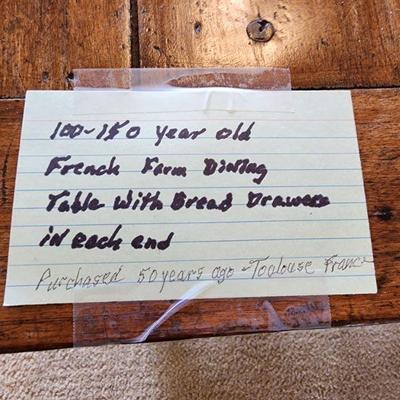 100-150 year old
French Farm Dining
Table with Bread Drawers
in each end
Purchased 50 years ago - Toulouse France